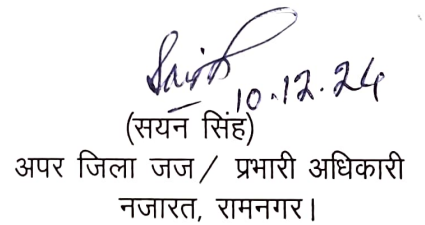 10.12.24
(सयन सिंह)
अपर जिला जज / प्रभारी अधिकारी
नजारत, रामनगर।